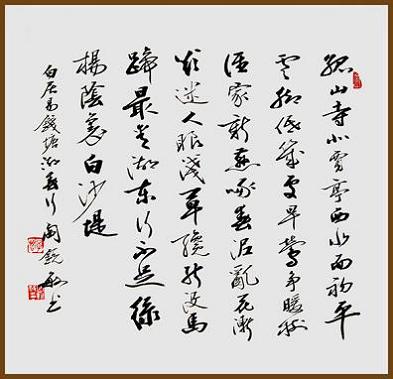 孤山寺北賈亭西水面初平
云脚低幾處早鶯争暖樹
誰家新燕啄春泥亂花漸
欲迷人眼淺草纔能没馬
蹄最愛湖東行不足緑
楊陰裏白沙堤
白居易錢塘湖春行 书